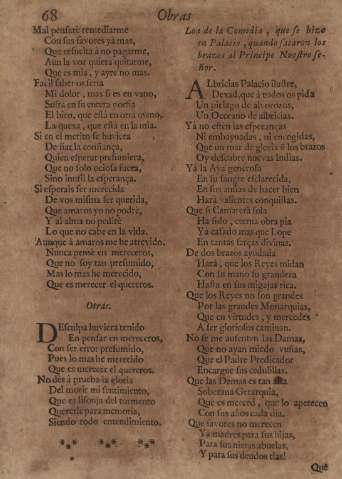 68
Obras
Mal pensarè remediarme
Con sus favores yà mas,
Que resulta à no pagarme,
Aun la voz quiera quitarme,
Que es mia, y ayre no mas.
Facil saber os seria
Mi dolor, mas si es en vano,
Sufra en su
El hizo, que està en otra mano,
La quexa, que està en la mia.
Si en el merito se huviera
De fiar la confiança,
Quien esperar presumiera,
Que no solo ociosa fuera,
Sino inutil la esperança.
Si esperais ser merecida
De vos misma ser querida,
Que amaros yo no podrè,
Y al alma no podrè
Lo que no cabe en la vida.
Aunque à amaros me he atrevido,
Nunca pensè en mereceros,
Que no soy tan presumido,
Mas lo mas he merecido,
Que es merecer el quereros.
Otras.
DEsculpa huviera tenido
En pensar en mereceros,
Con ser error presumido,
Pues lo mas he merecido
Que es merecer el quereros.
No des à prueba la gloria
Del morir mi sentimiento,
Que es lisonja del tormento
Quererle para memoria,
Siendo todo entendimiento.
Loa de la Comedia, que se hizo
en Palacio, quando sacaron los
braços al Principe Nuestro se-
ñor.
ALbricias Palacio ilustre,
Dexad, que à todos os pida
Un pielago de alboroços,
Un Occeano de albricias.
Yà no esten las esperanças
Ni embaynadas, ni encogidas,
Que un mar de gloria si los brazos
Oy descubre nuevas Indias.
Yà la Aya generosa
En su sangre esclarecida,
En sus ansias de hacer bien
Harà valientes conquistas.
Que si Camarera sola
Ha sido, eterna obra pia
Yà casado mas que Lope
En tantas farças divinas.
De dos brazos ayudada
Harà, que los Reyes midan
Con su mano su grandeza
Hasta en sus migajas rica.
Que los Reyes no son grandes
Por las grandes Monarquias,
Que en virtudes, y mercedes
A ser gloriosos caminan.
No se me ausenten las Damas,
Que no ayan miedo
Que el Padre Predicador
Encargue sus cedulillas.
Que las Damas es tan alta
Soberana Gerarquia,
Que es merced, que lo apetecen
Con sus años cada dia.
Que favores no merecen
Yà madres para sus hijas,
Para sus nietas abuelas,
Y para sus deudos tias!
Què